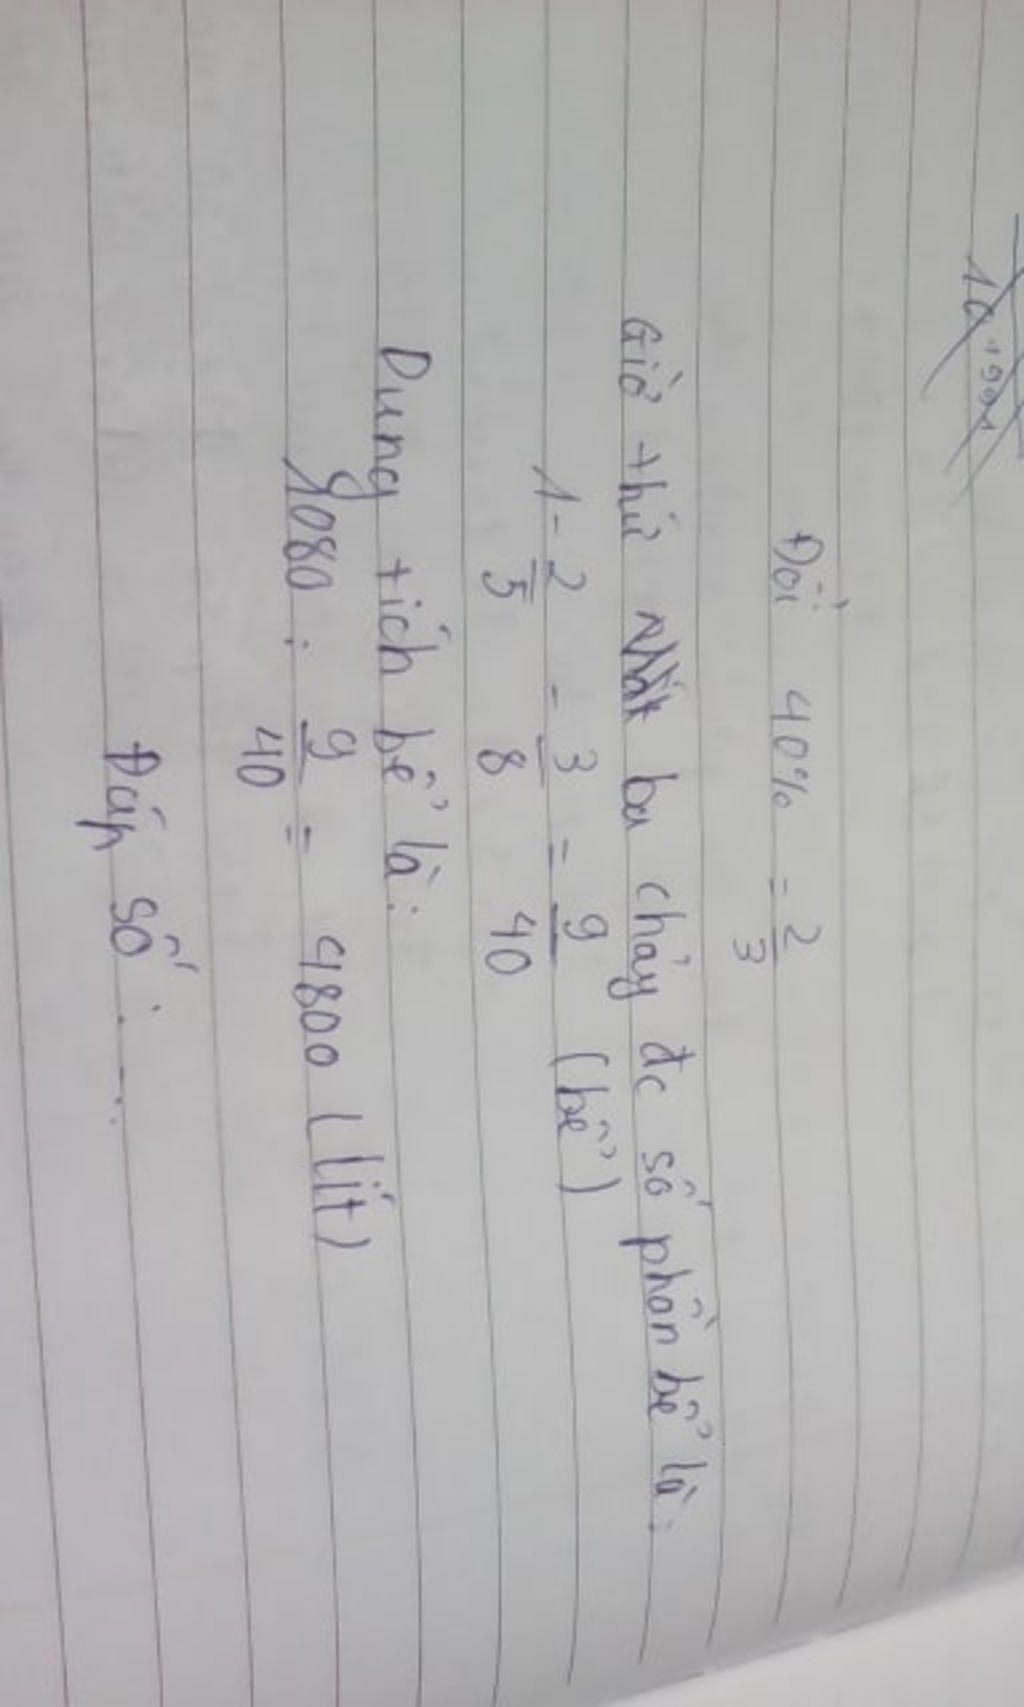 Đổi 40% = 2/3
Giờ thứ ba chảy đc số phần bể là:
1 - 2/5 - 3/8 = 9/40 (bể)
Dung tích bể là:
1080 : 9/40 = 4800 (lít)
Đáp số: ....